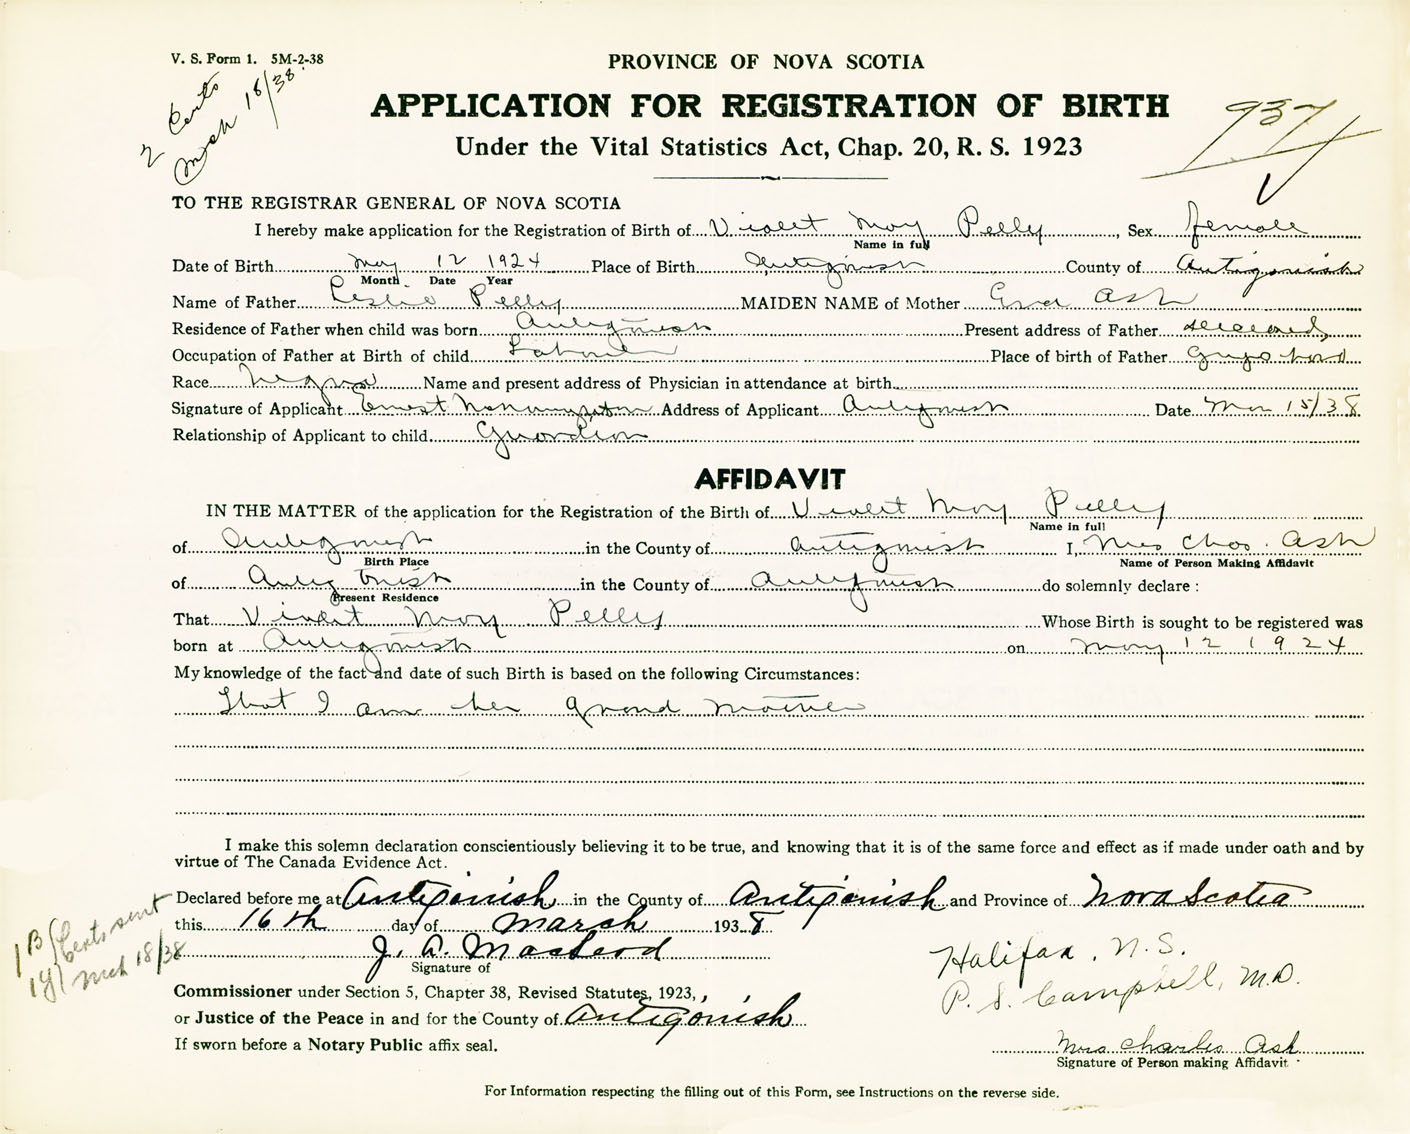 V. S. Form 1. 5M-2-38
2 Certs
Mch 18/38
PROVINCE OF NOVA SCOTIA
APPLICATION FOR REGISTRATION OF BIRTH
937
Under the Vital Statistics Act, Chap. 20, R. S. 1923
TO THE REGISTRAR GENERAL OF NOVA SCOTIA
I hereby make application for the Registration of Birth of Violet May Pelly, Sex female
Name in full
Date of Birth May 12 1924 Place of Birth Antigonish County of Antigonish
Month Date Year
Name of Father Leslie Pelly MAIDEN NAME of Mother Ash
Residence of Father when child was born Antigonish Present address of Father deceased,
Occupation of Father at Birth of child Laborer Place of birth of Father Guysboro
Race Negro Name and present address of Physician in attendance at birth
Signature of Applicant Ernest Address of Applicant Antigonish Date Mar 15/38
Relationship of Applicant to child Guardian
AFFIDAVIT
IN THE MATTER of the application for the Registration of the Birth of Violet May Pelly
Name in full
of Antigonish in the County of Antigonish I, Mrs Chas. Ash
Birth Place Name of Person Making Affidavit
of Antigonish in the County of Antigonish do solemnly declare:
Present Residence
That Violet May Pelly Whose Birth is sought to be registered was
born at Antigonish on May 12 1924
My knowledge of the fact and date of such Birth is based on the following Circumstances:
That I am her grand mother
I make this solemn declaration conscientiously believing it to be true, and knowing that it is of the same force and effect as if made under oath and by
virtue of The Canada Evidence Act.
Declared before me at Antigonish in the County of Antigonish and Province of Nova Scotia
this 16th day of March 1938
1 B/Certs sent
Mch 18/38
J. A. MacLeod
Signature of
Halifax, N.S.
P. S. Campbell, M.D.
Commissioner under Section 5, Chapter 38, Revised Statutes, 1923,
or Justice of the Peace in and for the County of Antigonish
If sworn before a Notary Public affix seal.
Mrs Charles Ash
Signature of Person making Affidavit
For Information respecting the filling out of this Form, see Instructions on the reverse side.